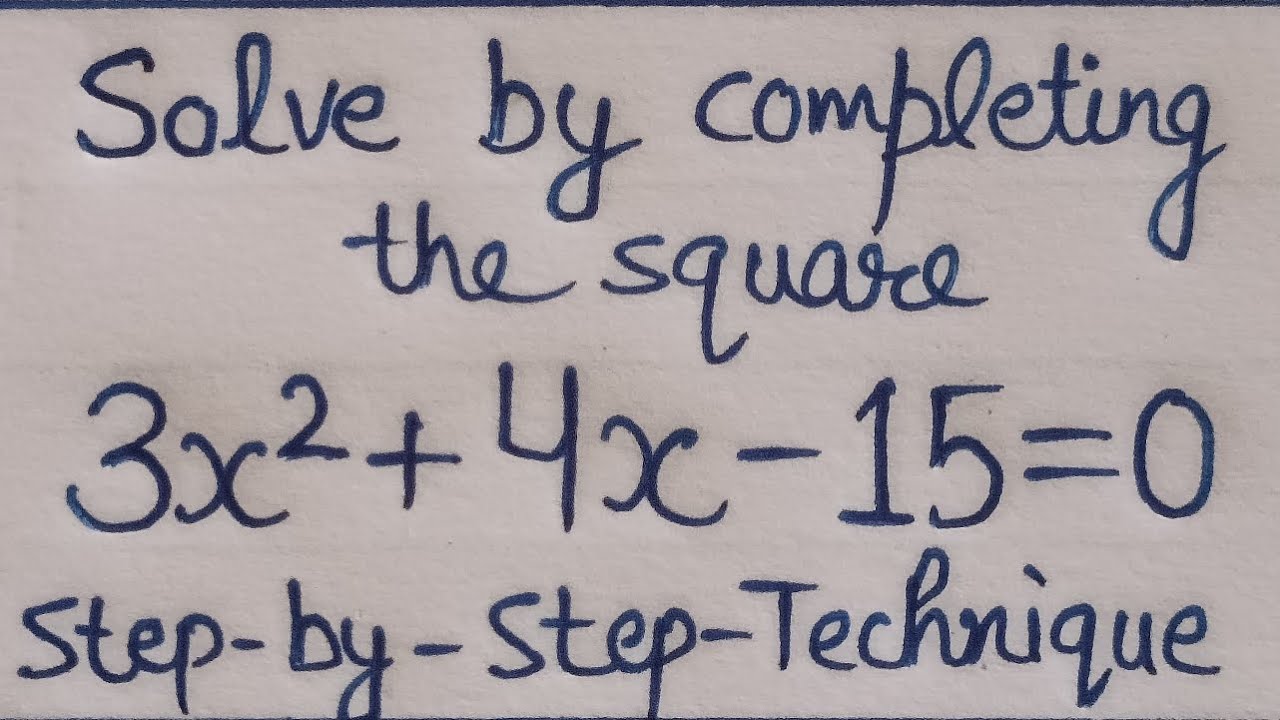 Solve by completing
the square
3x²+4x-15=0
Step-by-Step-Technique